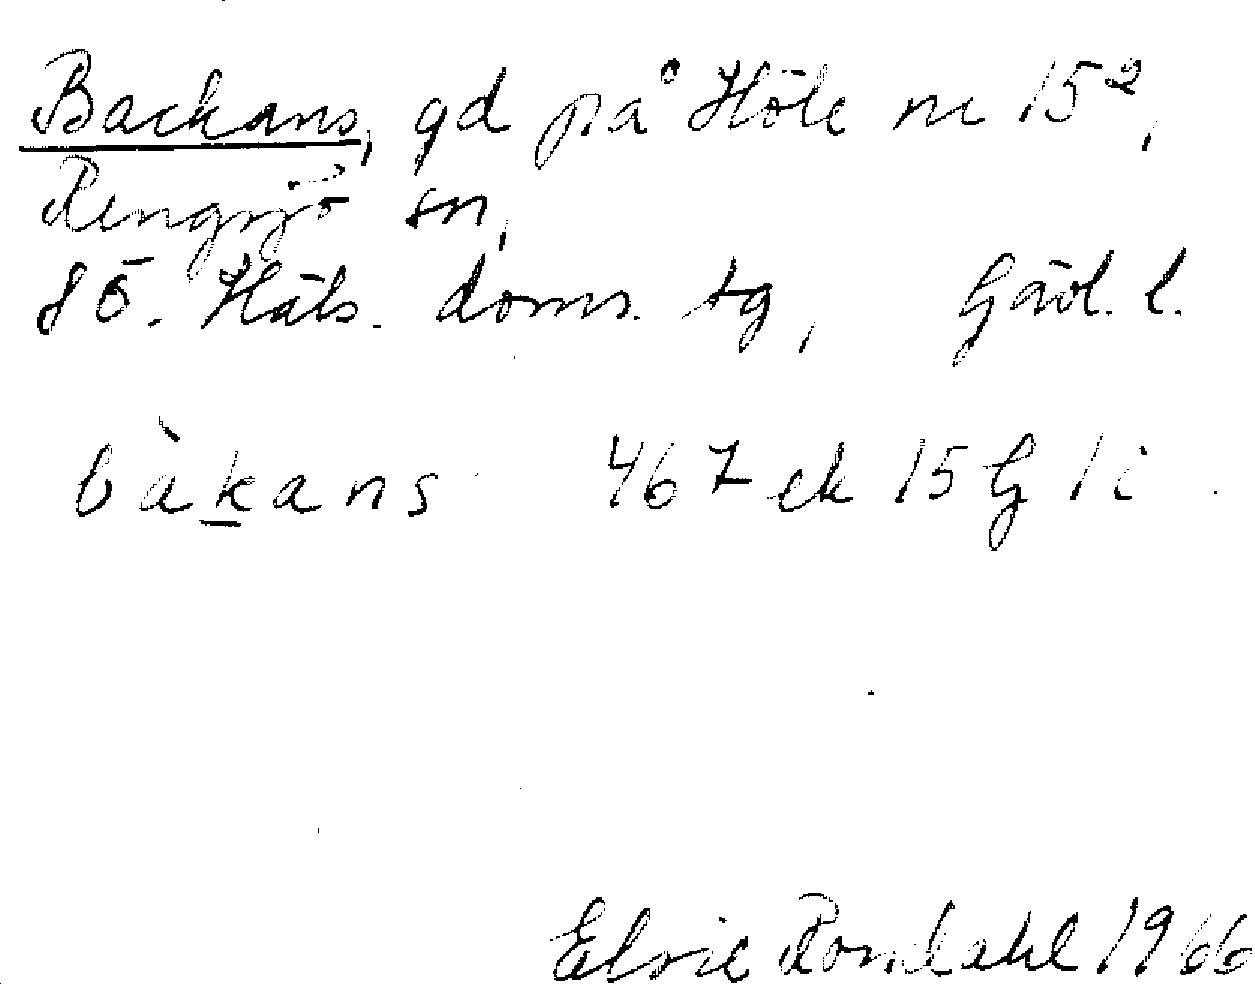 Backans, gd på Höle nr 15²,
Rengsjö sn,
SÖ. Häls. doms. tg, Gävl. l.
bàkans 467 ek 15 G 1 i
Elsie Romdahl 1966